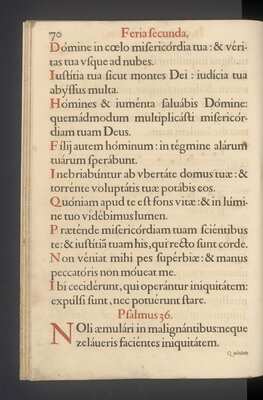 70 Feria secunda,
Dómine in cœlo misericórdia tua: & véri-
tas tua vsque ad nubes.
Iustítia tua sicut montes Dei: iudícia tua
abýssus multa.
Hómines & iuménta saluábis Dómine:
quemádmodum multiplicásti misericór-
diam tuam Deus.
Fílij autem hóminum: in tégmine alárum
tuárum sperábunt.
Inebriabúntur ab vbertáte domus tuæ: &
torrénte voluptátis tuæ potábis eos.
Quóniam apud te est fons vitæ: & in lúmi-
ne tuo vidébimus lumen.
Præténde misericórdiam tuam sciéntibus
te: & iustítiã tuam his, qui recto sunt corde.
Non véniat mihi pes supérbiæ: & manus
peccatóris non móueat me.
Ibi cecidérunt, qui operántur iniquitátem:
expúlsi sunt, nec potuérunt stare.
Psalmus 36.
NOli æmulári in malignántibus: neque
zeláueris faciéntes iniquitátem.